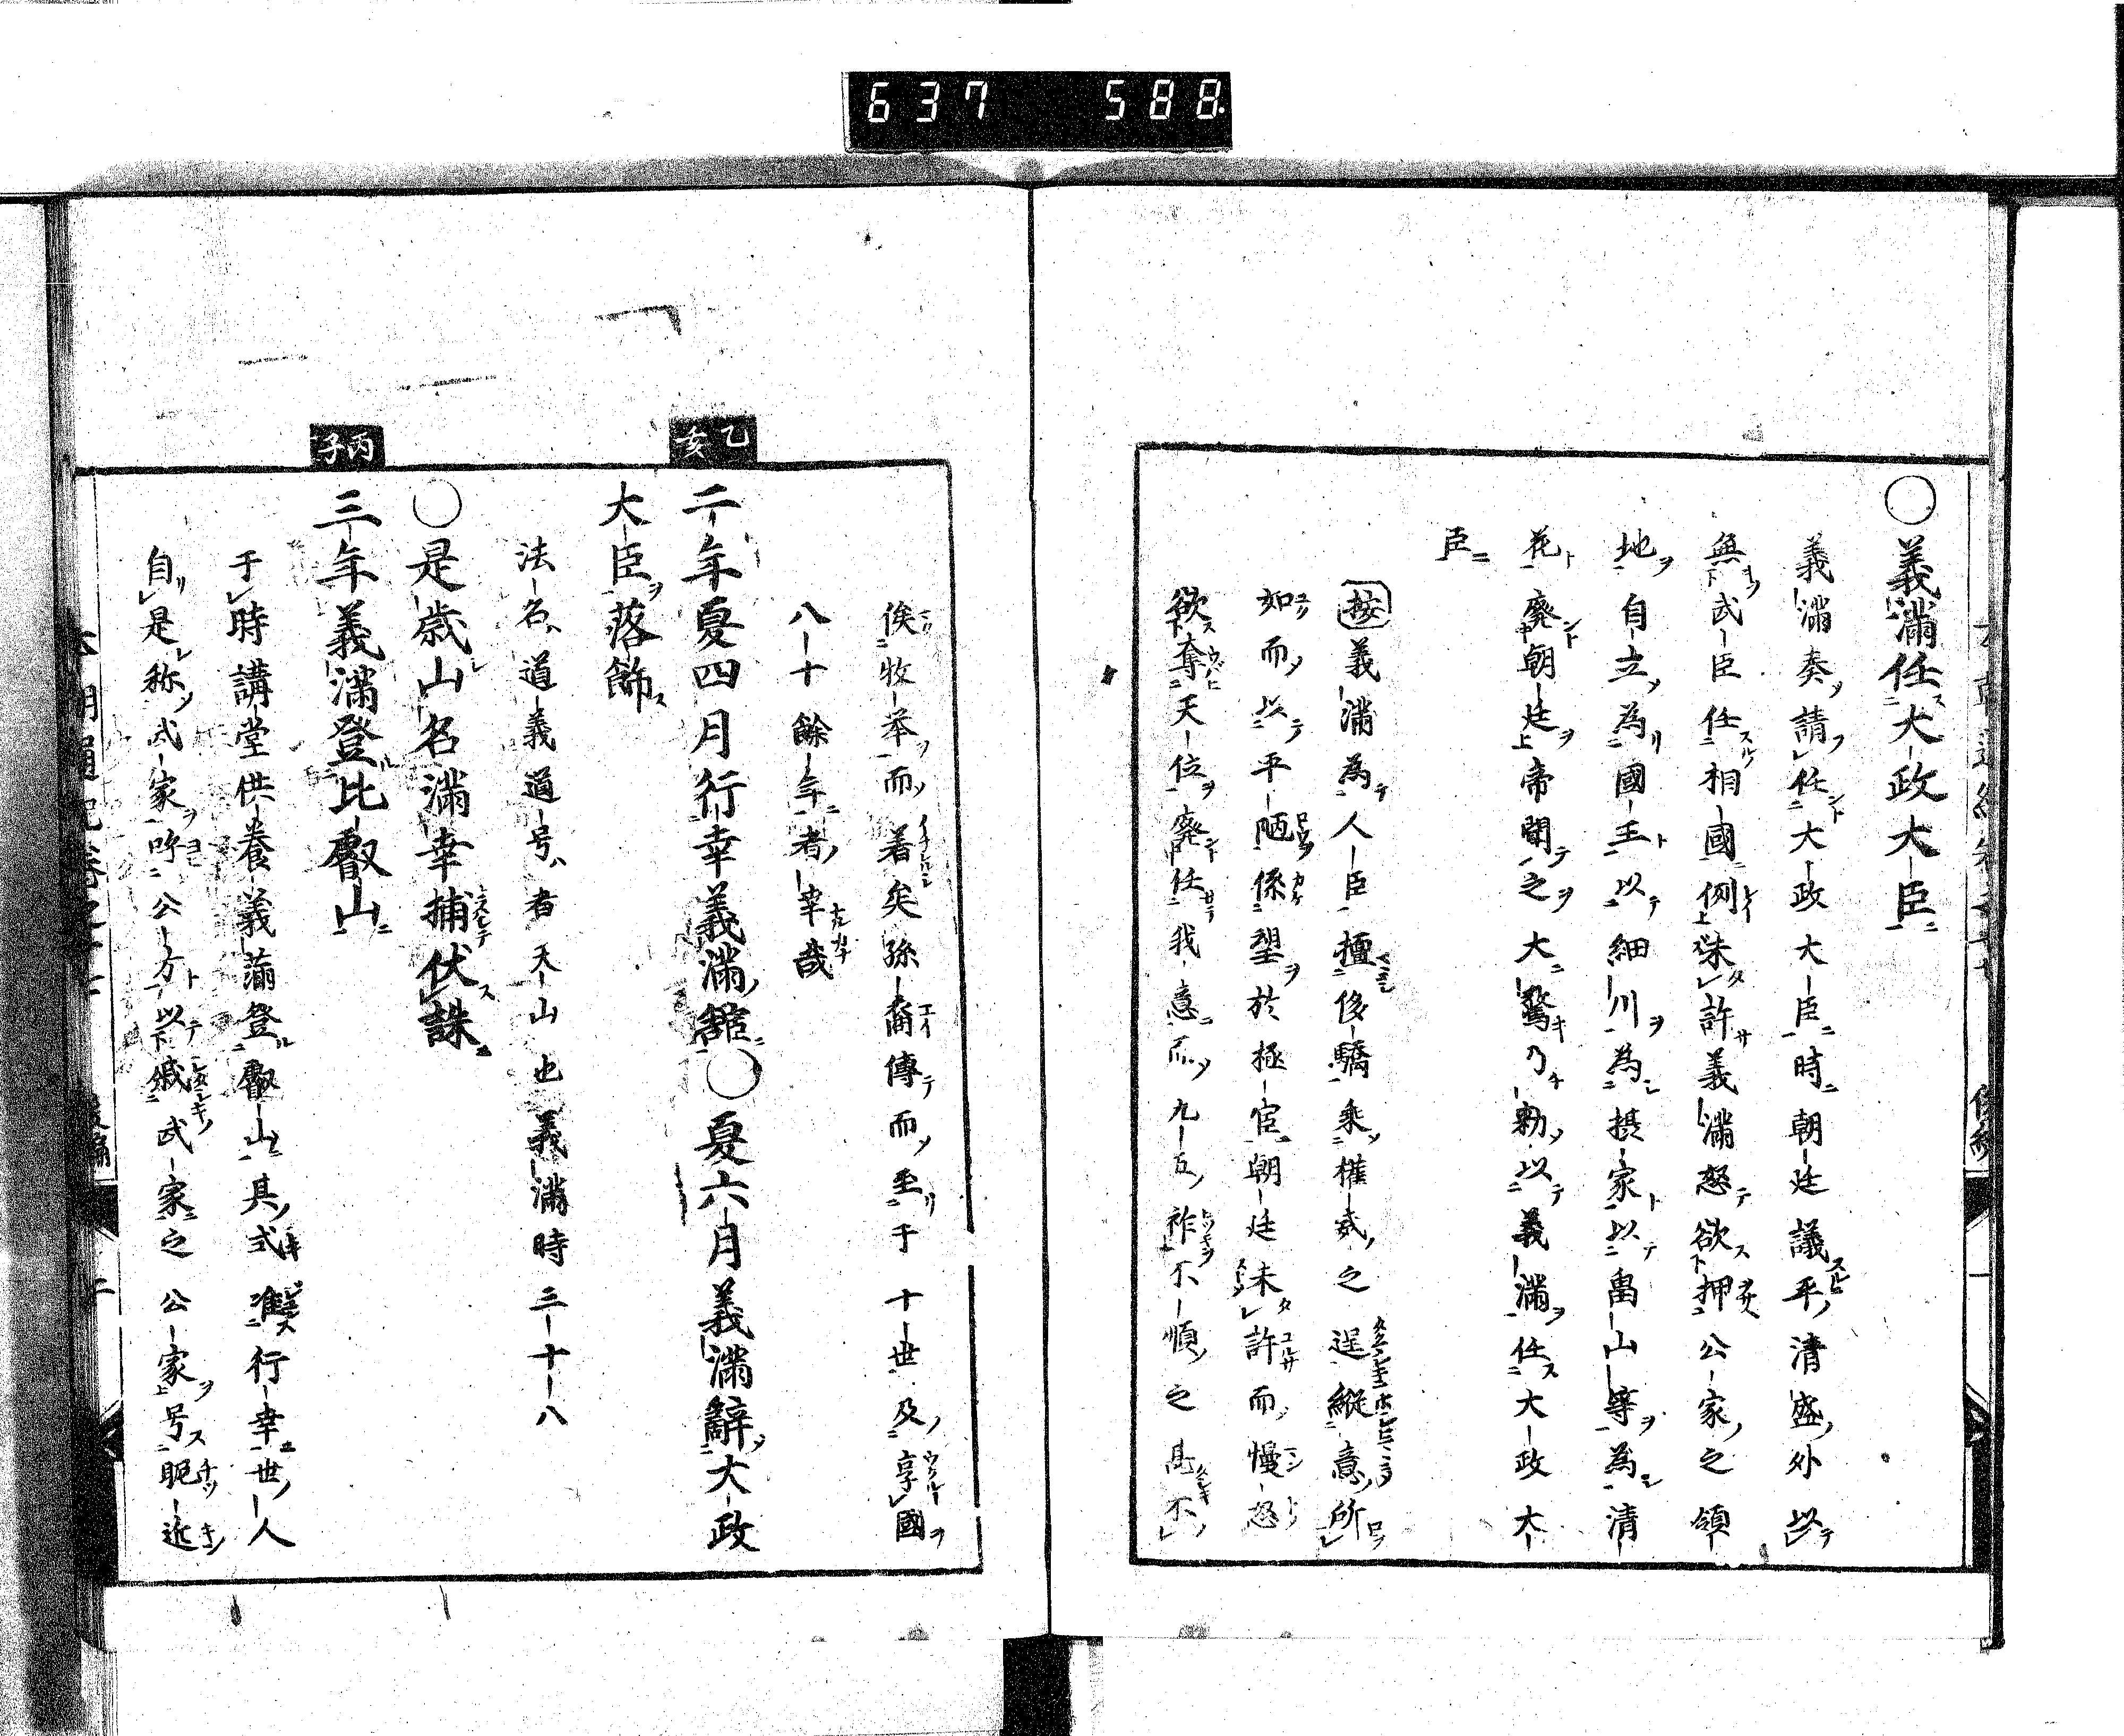 637 588
○義満任大政大臣
義満奏請任大政大臣時朝廷議平清盛外以
無武臣任相國例未許義満怒欲押公家之領
地自立為國王以細川為摂家以畠山等為清
花廃朝廷帝聞之大驚乃勅以義満任大政大
臣
按義満為人臣擅侈驕乗權威之逞縦意所
如而以平陋係望於極官朝廷未許而慢怒
欲奪天位廃任我意而九五祚不順之甚不
俟牧挙而着矣孫裔傳而至于十世及享國
八十餘年者幸哉
乙亥
二年夏四月行幸義満舘○夏六月義満辭大政
大臣落飾
法名道義道号者天山也義満時三十八
○是歳山名満幸捕伏誅
丙子
三年義満登比叡山
于時講堂供養義満登叡山其式准行幸世人
自是称武家呼公方以武家之公家号昵近